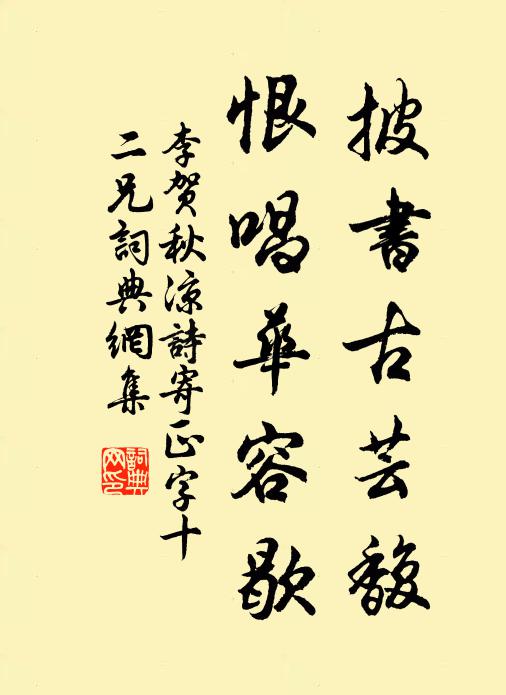 披書古芸馥
恨唱華容歇
李贺秋涼詩寄正字十
二兄詞典網集
詞典网印